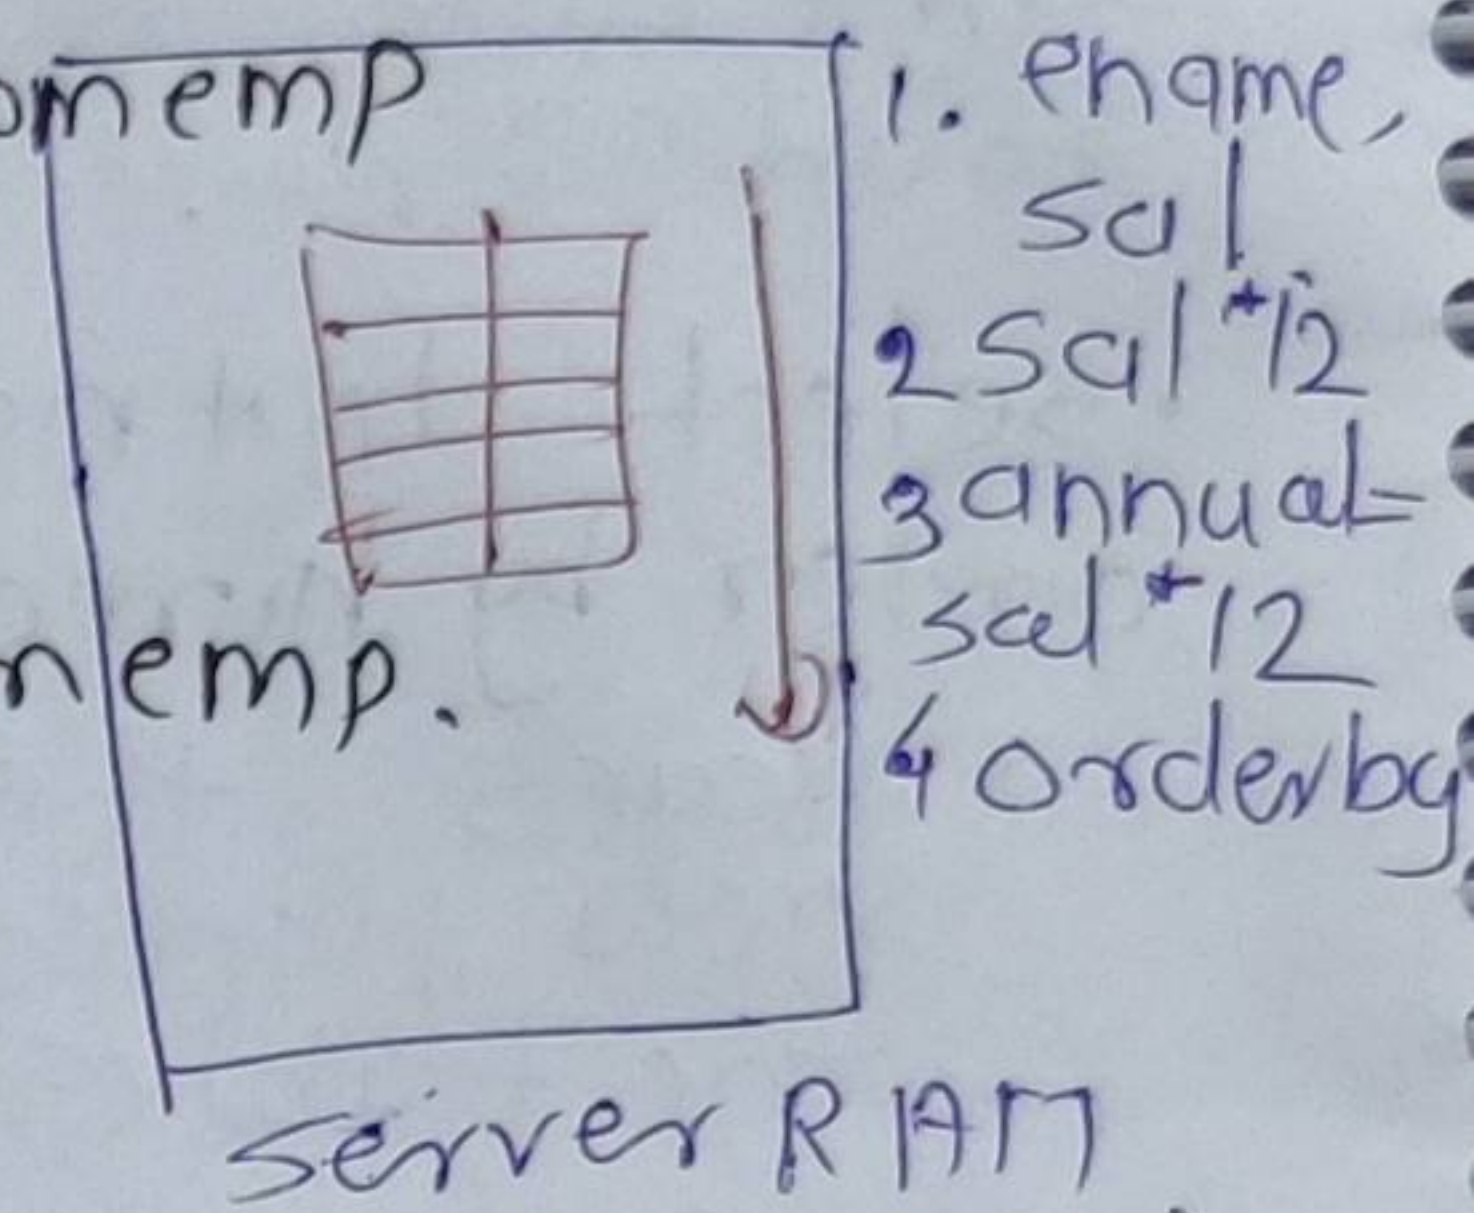 omemp
1. ename,
sal
2 sal *12
3 annual=
sal *12
4 orderby
memp.
server RAM